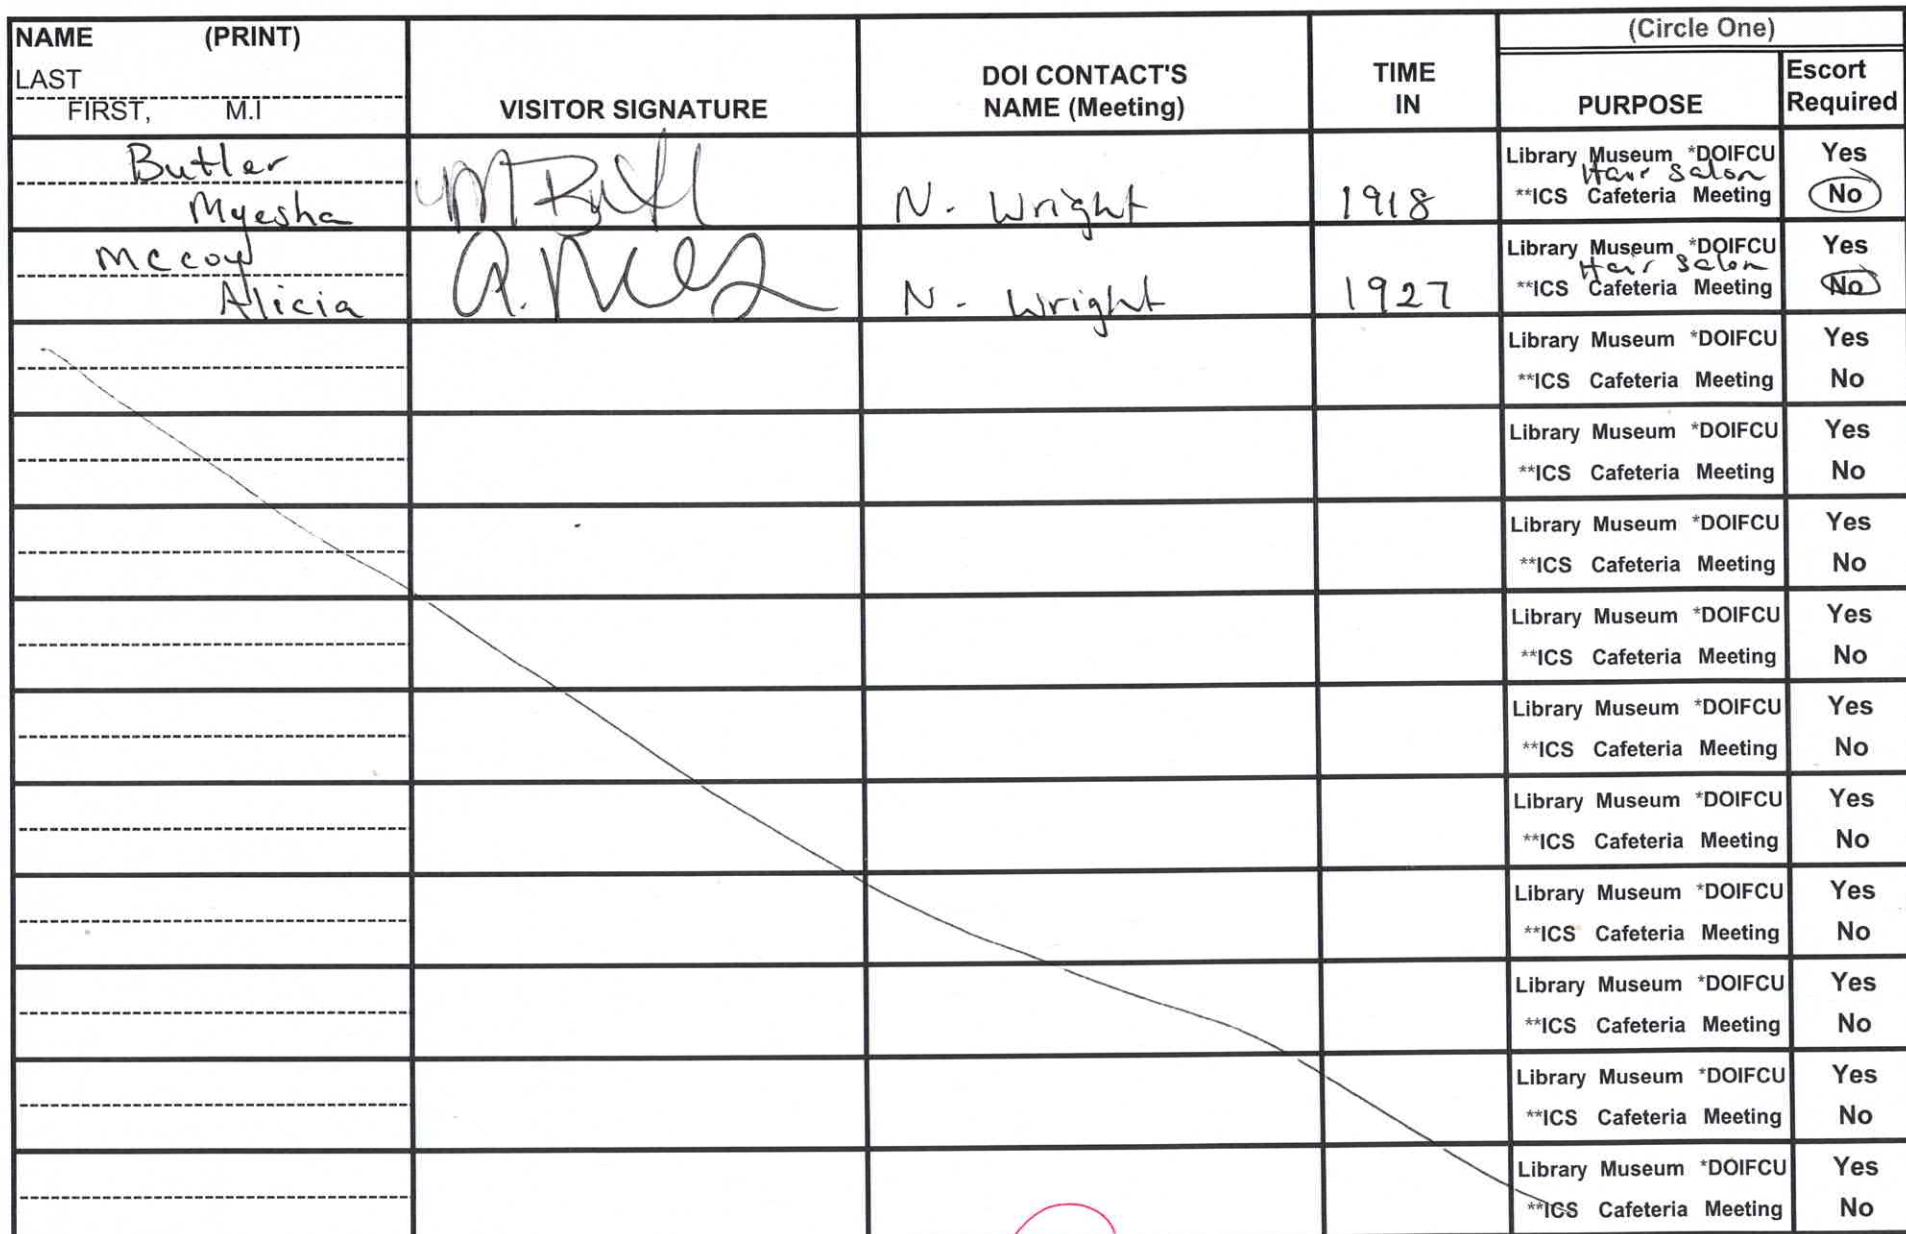 NAME (PRINT)
LAST
FIRST, M.I
VISITOR SIGNATURE
DOI CONTACT'S
NAME (Meeting)
TIME
IN
(Circle One)
PURPOSE
Escort
Required
Butler
Myesha
N. Wright
1918
Library Museum *DOIFCU Yes
Hair Salon
**ICS Cafeteria Meeting No
Mccoy
Alicia
N. Wright
1927
Library Museum *DOIFCU Yes
Hair Salon
**ICS Cafeteria Meeting No
Library Museum *DOIFCU Yes
**ICS Cafeteria Meeting No
Library Museum *DOIFCU Yes
**ICS Cafeteria Meeting No
Library Museum *DOIFCU Yes
**ICS Cafeteria Meeting No
Library Museum *DOIFCU Yes
**ICS Cafeteria Meeting No
Library Museum *DOIFCU Yes
**ICS Cafeteria Meeting No
Library Museum *DOIFCU Yes
**ICS Cafeteria Meeting No
Library Museum *DOIFCU Yes
**ICS Cafeteria Meeting No
Library Museum *DOIFCU Yes
**ICS Cafeteria Meeting No
Library Museum *DOIFCU Yes
**ICS Cafeteria Meeting No
Library Museum *DOIFCU Yes
**ICS Cafeteria Meeting No